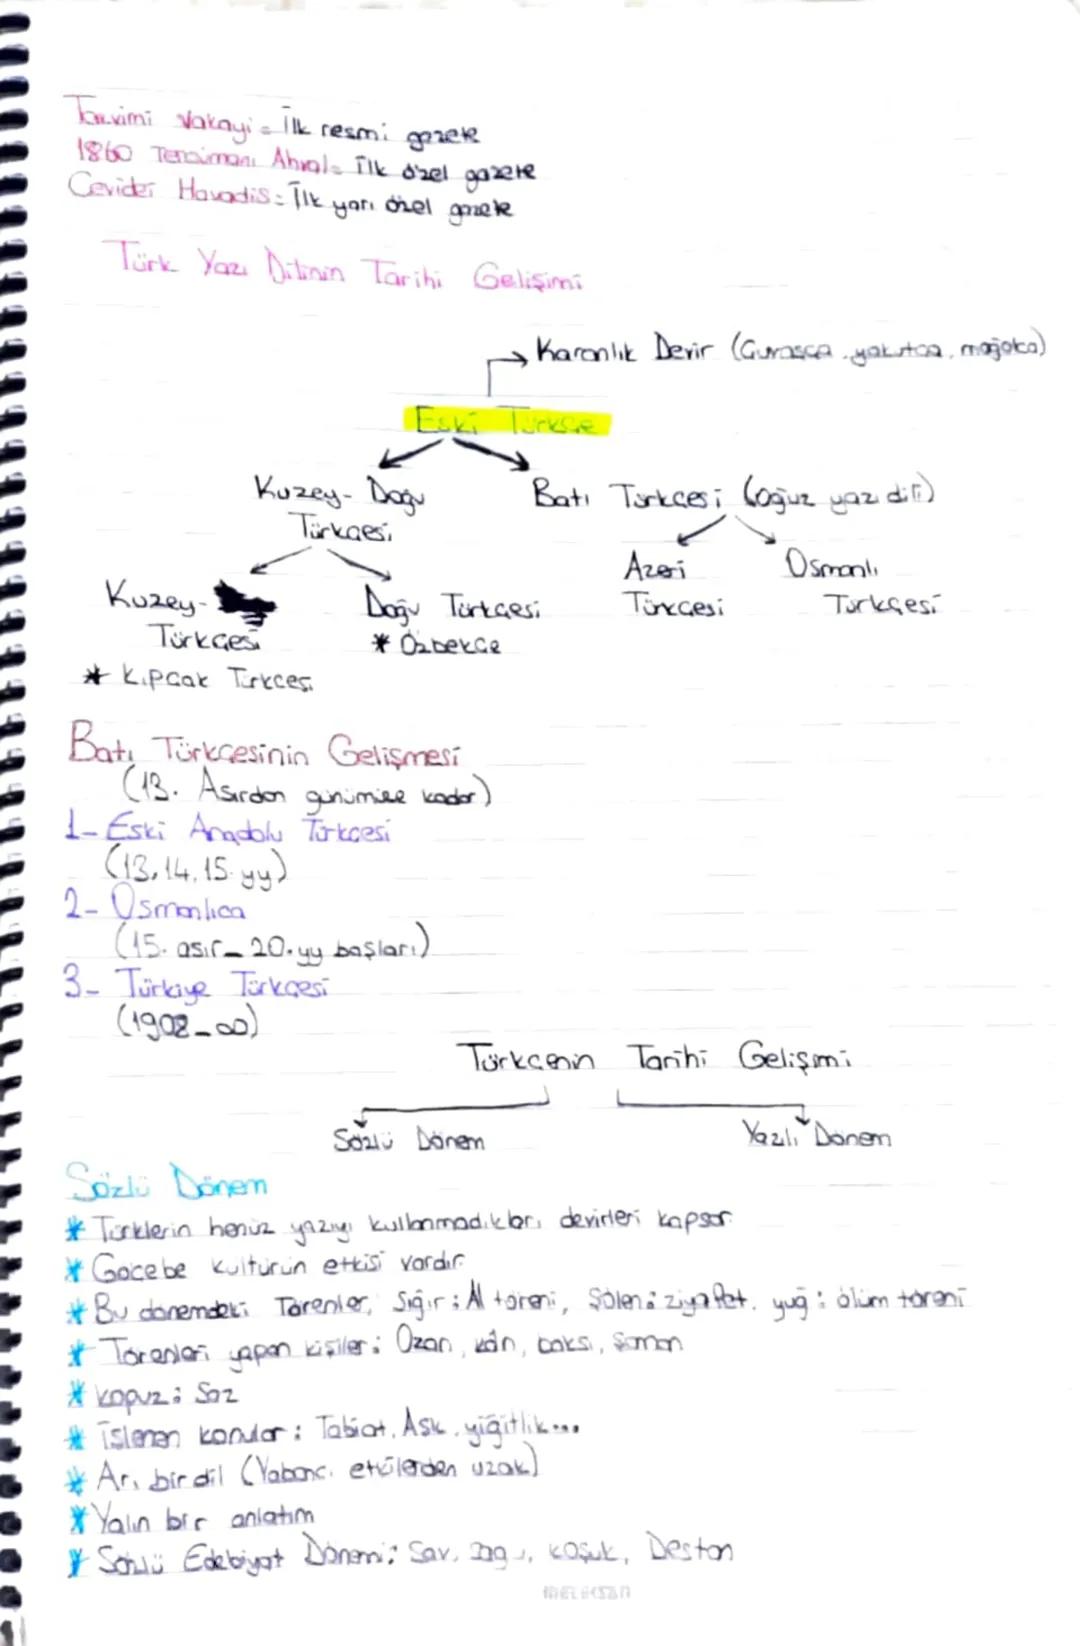 Takvimi Vakayi = İlk resmi gazete
1860 Tercümanı Ahval = İlk özel gazete
Cevideı Havadis = İlk yarı özel gazete
Türk Yazı Dilinin Tarihi Gelişimi
Karanlık Devir (Çuvaşça, yakutça, mojolca)
Eski Türkçe
Kuzey-Doğu Türkçesi
Batı Türkçesi (oğuz yazı dili)
Kuzey- Türkçesi
* Kıpçak Türkçesi
Doğu Türkçesi
* Özbekçe
Azeri Türkçesi
Osmanlı Türkçesi
Batı Türkçesinin Gelişmesi
(13. Asırdan günümüze kadar)
1- Eski Anadolu Türkçesi
(13, 14, 15. yy)
2- Osmanlıca
(15. asır - 20. yy başları)
3- Türkiye Türkçesi
(1908 - ∞)
Türkçenin Tarihi Gelişimi
Sözlü Dönem
Yazılı Dönem
Sözlü Dönem
* Türklerin henüz yazıyı kullanmadıkları devirleri kapsar.
* Göcebe kültürün etkisi vardır.
* Bu dönemdeki Törenler, Sığır : Al töreni, Şölen : ziyafet, yuğ : ölüm töreni
* Törenleri yapan kişiler : Ozan, kân, baksı, Şaman
* kopuz : Saz
* işlenen konular : Tabiat, Aşk, yiğitlik...
* Arı bir dil (Yabancı etkilerden uzak)
* Yalın bir anlatım
* Sözlü Edebiyat Dönemi : Sav, sagu, koşuk, Destan